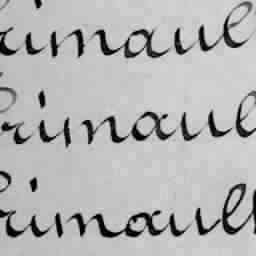 rimaul
rimaul
rimaull